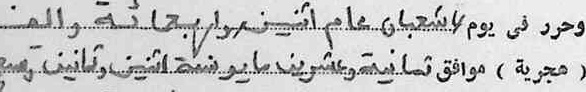 وحرر فى يوم ٧ شعبان عام اثنين واربعمائة والف
( هجرية ) موافق ثمانية وعشرون مايو سنة اثنين وثمانين وتسع